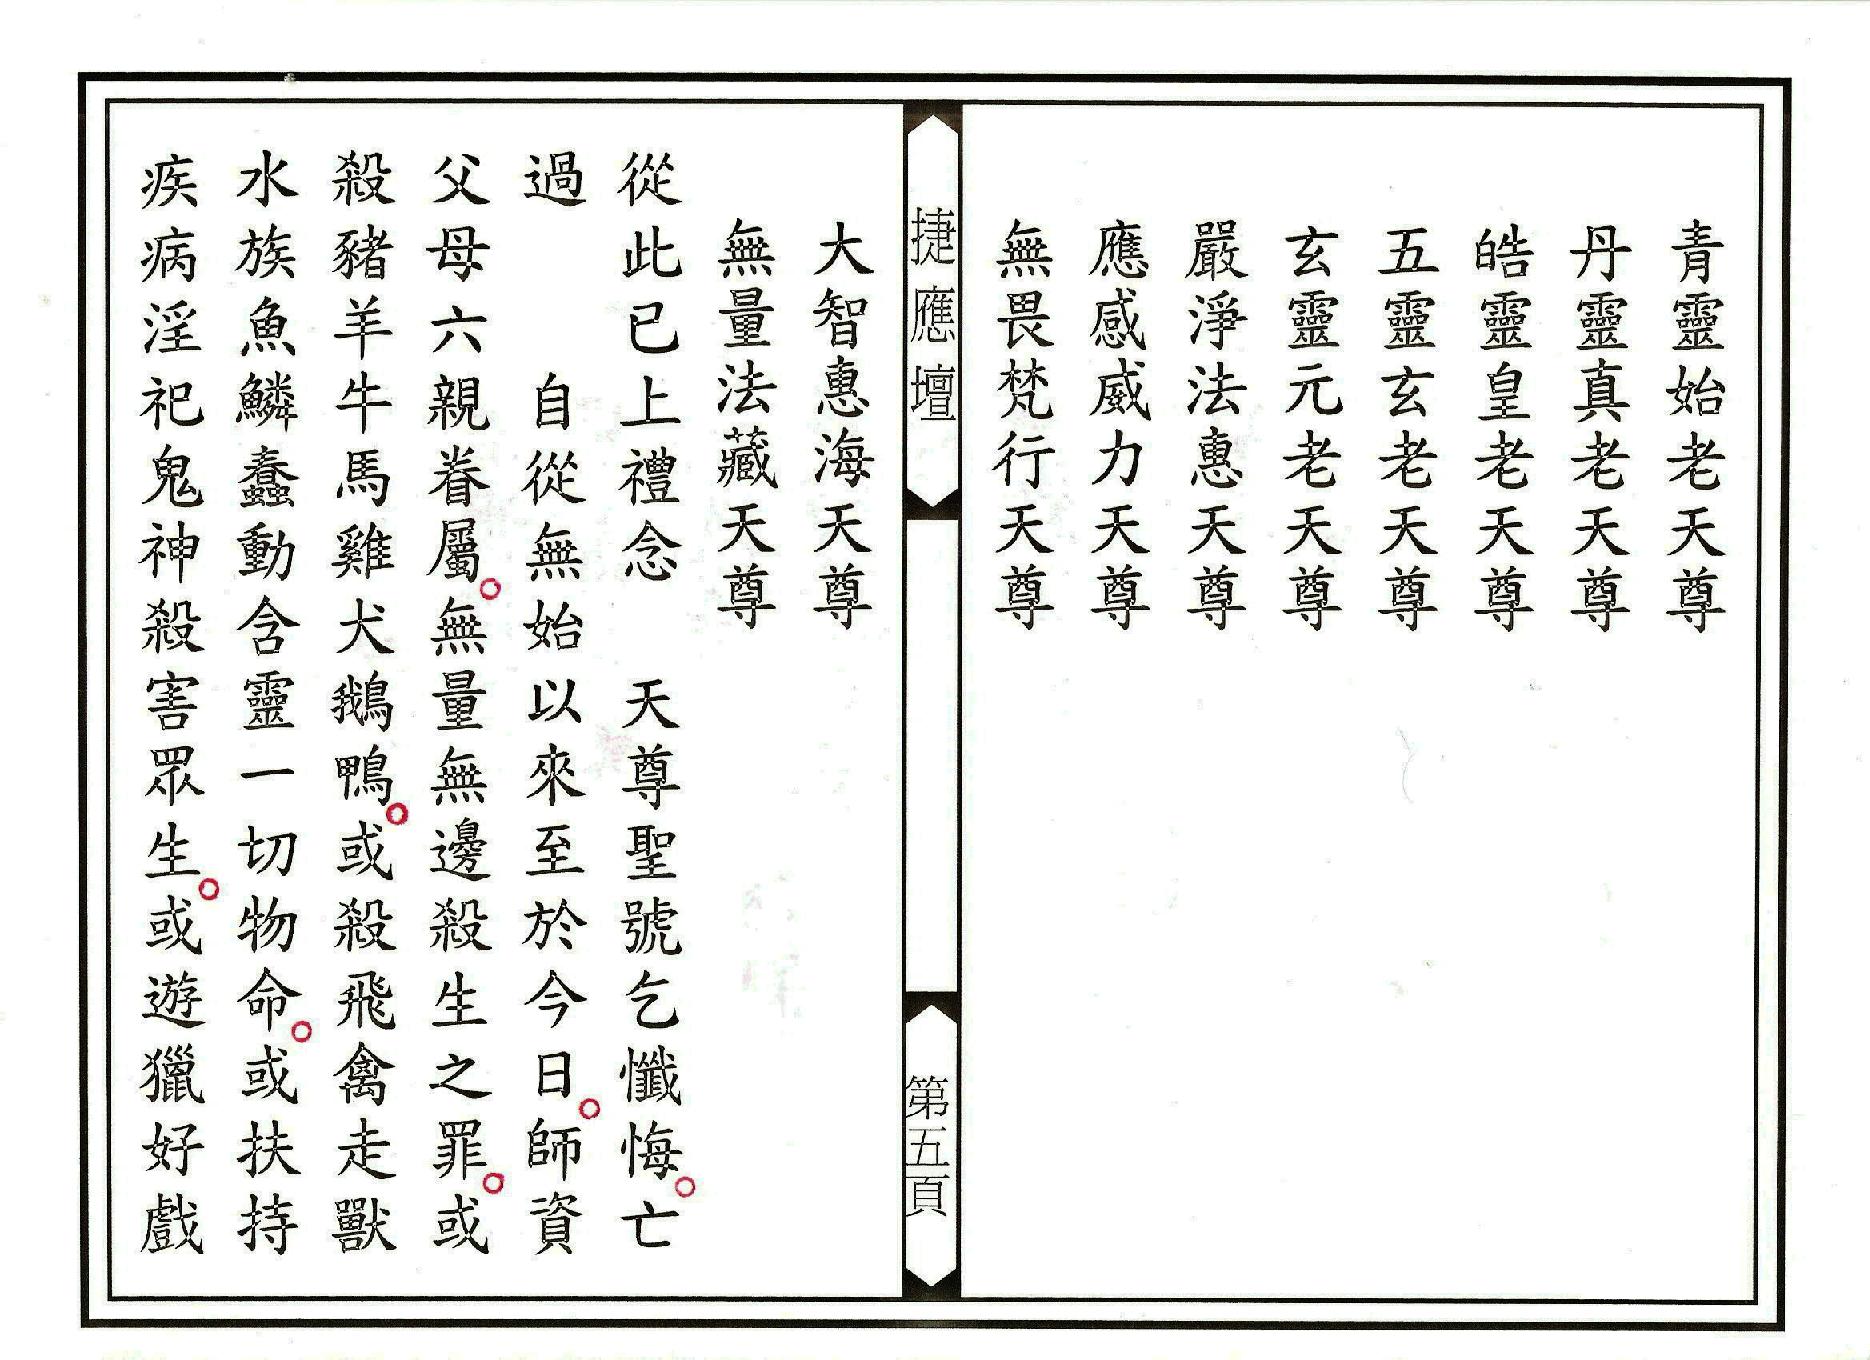 青靈始老天尊
丹靈真老天尊
皓靈皇老天尊
五靈玄老天尊
玄靈元老天尊
嚴淨法惠天尊
應感威力天尊
無畏梵行天尊
捷應壇
第五頁
大智惠海天尊
無量法藏天尊
從此已上禮念　天尊聖號乞懺悔。亡
過　　自從無始以來至於今日。師資
父母六親眷屬。無量無邊殺生之罪。或
殺豬羊牛馬雞犬鵝鴨。或殺飛禽走獸
水族魚鱗蠢動含靈一切物命。或扶持
疾病淫祀鬼神殺害眾生。或遊獵好戲